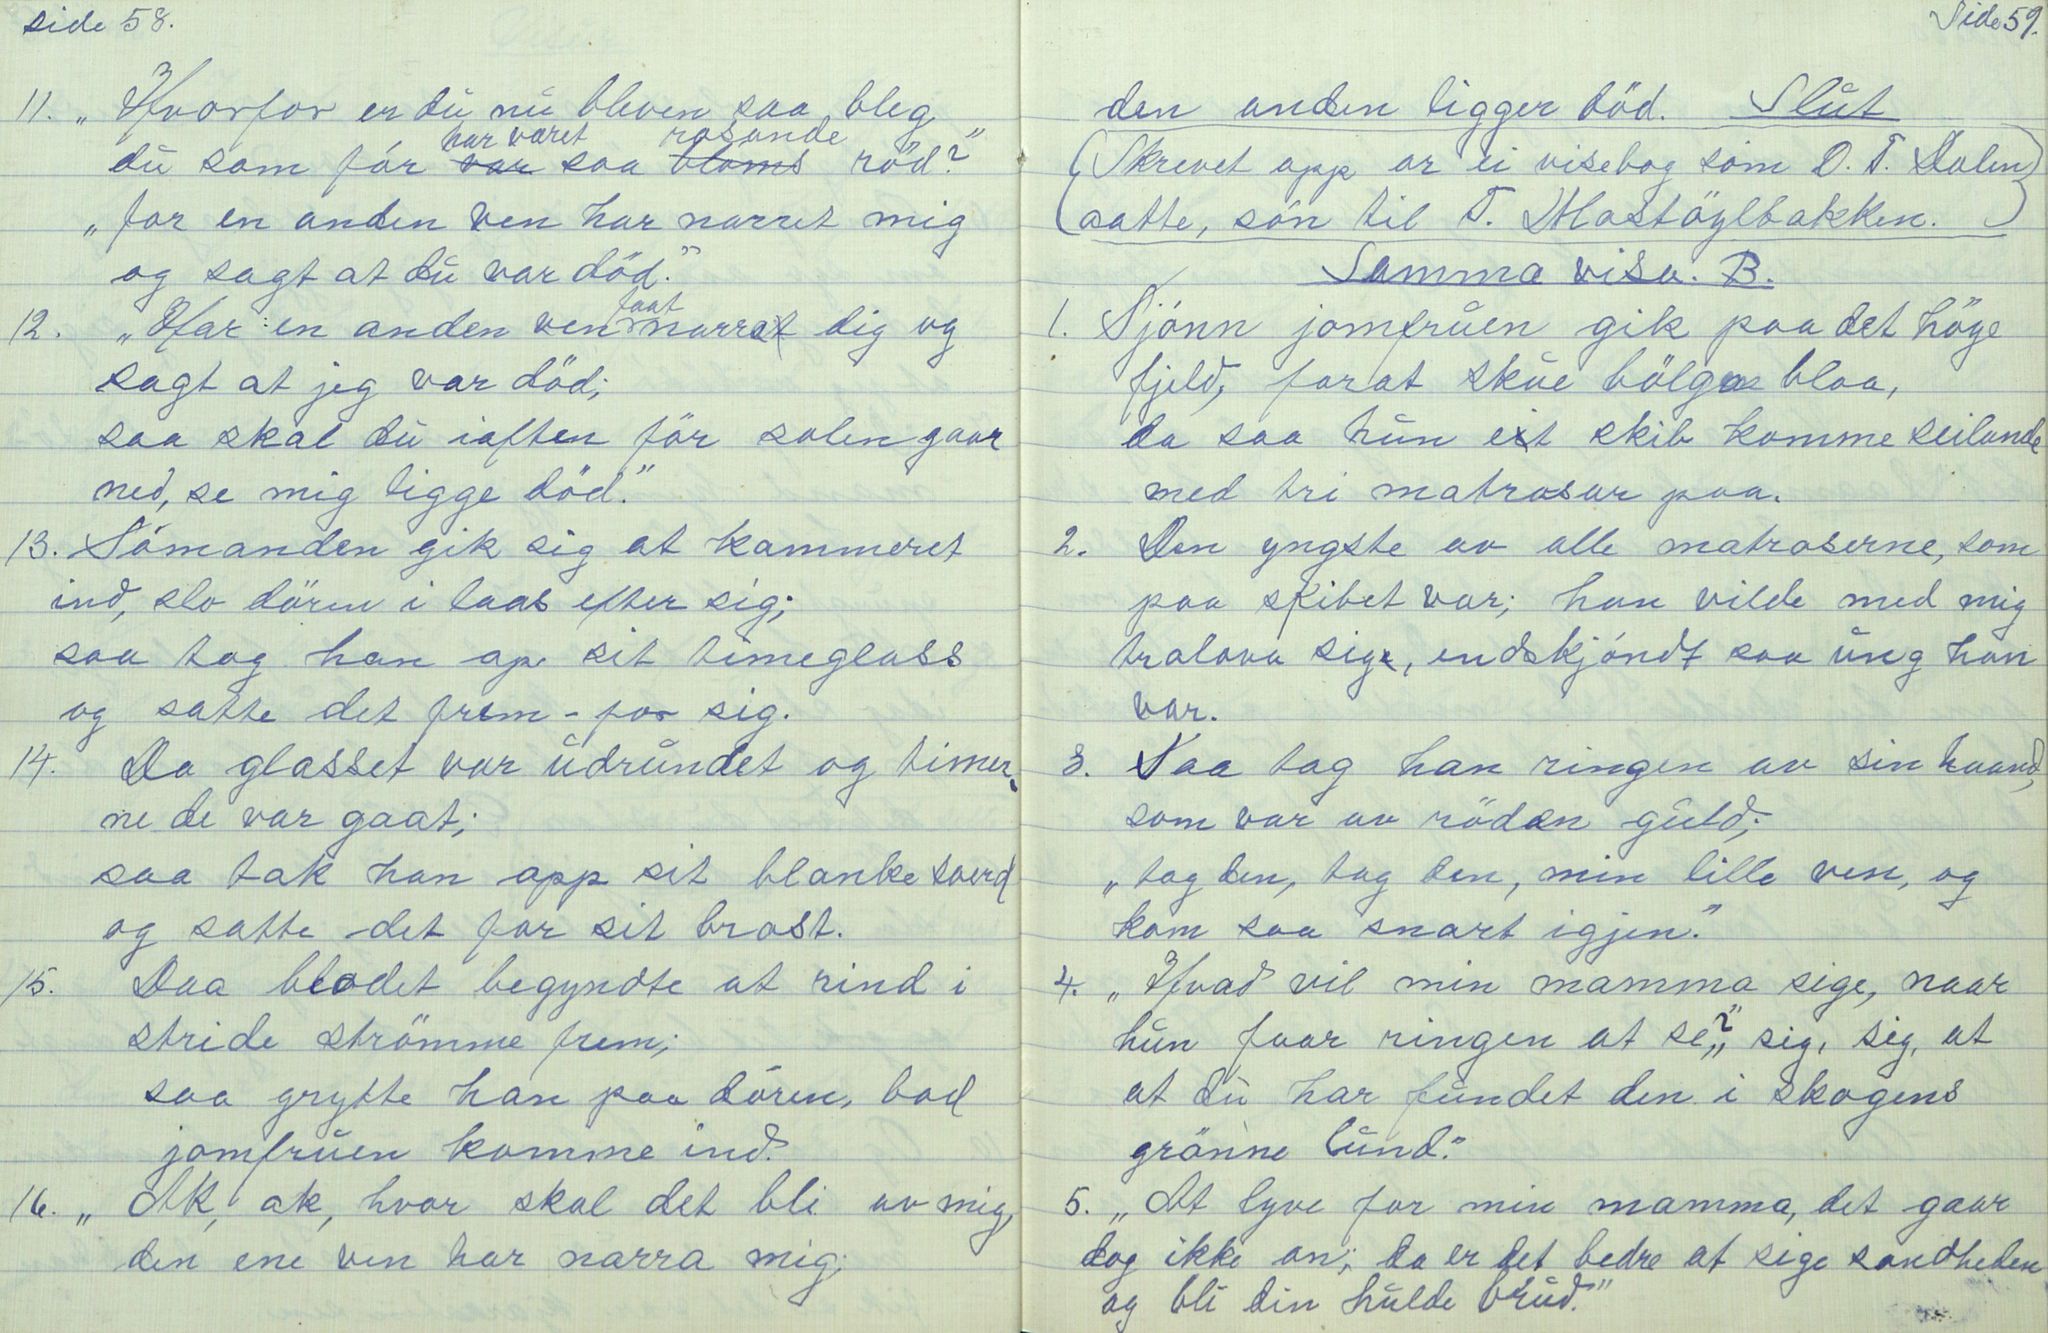 side 58.
11. „Hvorfor er du nu bleven saa bleg
har været rosande
du som før var saa bloms röd?"
„for en anden ven har narret mig
og sagt at du var död."
12. „Har en anden ven faat narrat dig og
sagt at jeg var död;
saa skal du iaften för solen gaar
ned, se mig ligge död."
13. Sömanden gik sig at kammeret
ind, slo dören i laas efter sig;
saa tog han op sit timeglass
og satte det frem-for sig.
14. Da glasset var udrundet og timer-
ne de var gaat;
saa tok han opp sit blanke sverd
og satte det for sit brost.
15. Daa blodet begyndte at rind i
stride strömme frem;
saa grytte han paa dören, bad
jomfruen komme ind.
16. „Ak, ak, hvor skal det bli av mig,
den ene ven har narra mig;
Side 59.
den anden ligger död. Slut
(Skrevet opp or ei visebog som O. T. Dalen
aatte, sön til T. Mostöylbakken.)
Samma visa. B.
1. Sjönn jomfruen gik paa det höge
fjeld, forat skue bölgone bloa,
da saa hun eit skib komme seilande
med tri matrosar paa.
2. Den yngste av alle matroserne, som
paa skibet var; han vilde med mig
trolova sig, endskjöndt saa ung han
var.
3. Saa tog han ringen av sin haand,
som var av röden guld;
„tag den, tag den, min lille ven, og
kom saa snart igjen."
4. „Hvad vil min mamma sige, naar
hun faar ringen at se?" „sig, sig, at
at du har fundet den i skogens
grönne lund."
5. „At lyve for min mamma, det gaar
dog ikke an; da er det bedre at sige sandheden
og bli din hulde brud."